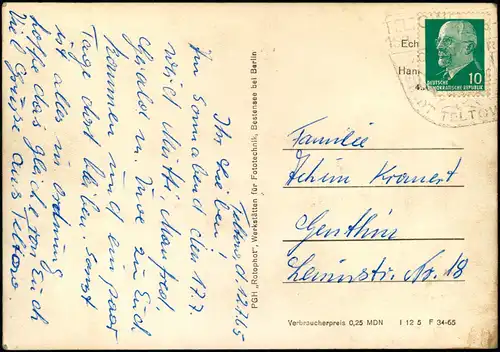 Teltow, d. 12.7.65
Ihr Lieben!
Am Sonnabend den 17.7.
wird Mutti, Manfred,
u. Uwe zu Euch
kommen und ein paar
Tage dort bleiben. Sonst
ist alles in Ordnung
hoffe das gleiche von Euch
Viel Grüße aus Teltow
PGH „Rotophot“, Werkstätten für Fototechnik, Bestensee bei Berlin
Ech
Han
10
DEUTSCHE
DEMOKRATISCHE REPUBLIK
TELTOW
Familie
Achim Kranert
Genthin
Leninstr. Nr. 18
Verbraucherpreis 0,25 MDN I 12 5 F 34-65